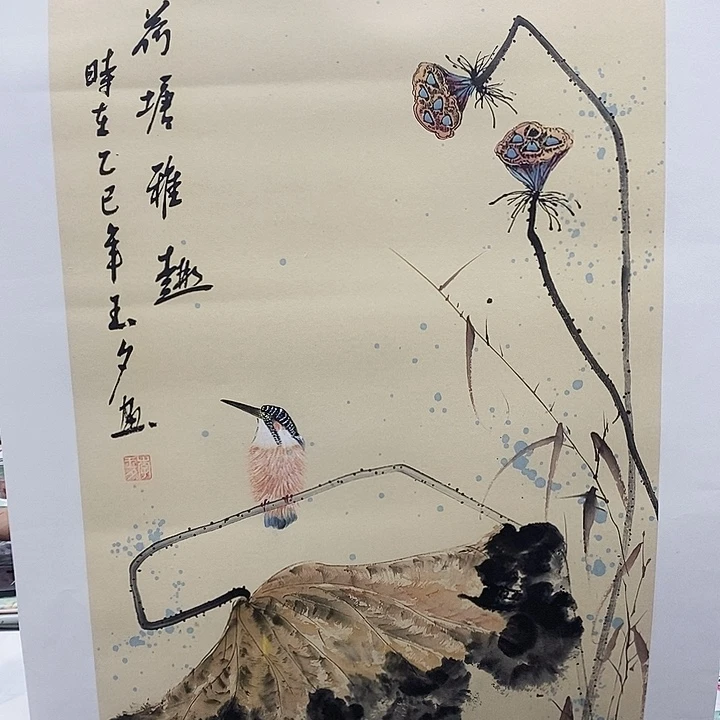 荷塘雅趣
時在乙巳年玉夕画